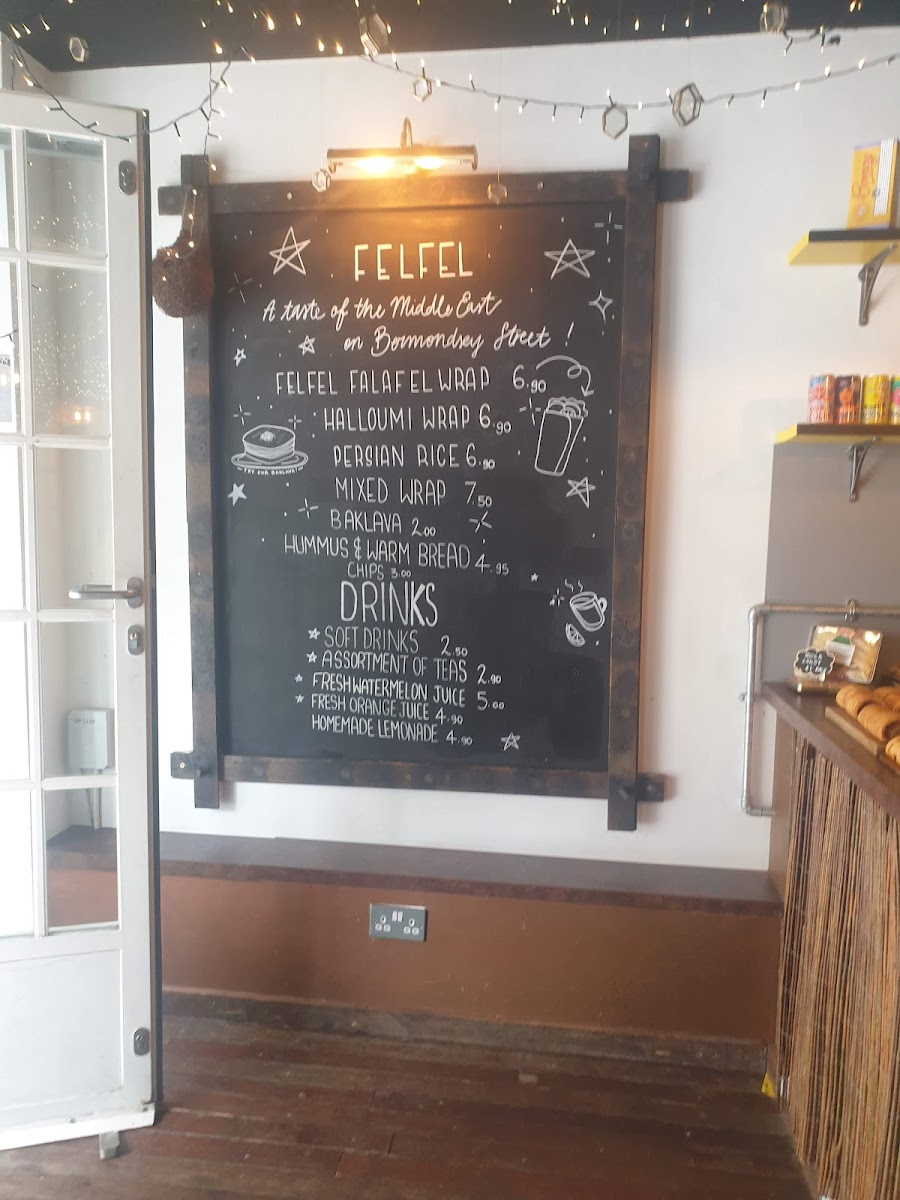 FELFEL
A taste of the Middle East
on Bermondsey Street !
FELFEL FALAFEL WRAP 6.90
HALLOUMI WRAP 6.90
PERSIAN RICE 6.90
MIXED WRAP 7.50
TRY OUR BAKLAVA!
BAKLAVA 2.00
HUMMUS & WARM BREAD 4.95
CHIPS 3.00
DRINKS
SOFT DRINKS 2.50
ASSORTMENT OF TEAS 2.90
FRESH WATERMELON JUICE 5.00
FRESH ORANGE JUICE 4.90
HOMEMADE LEMONADE 4.90